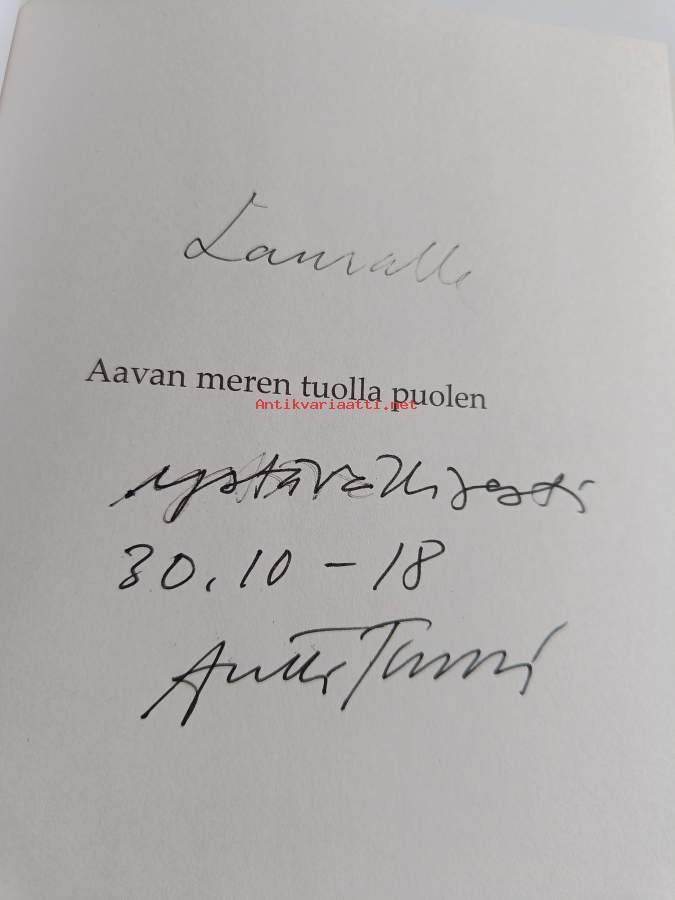 Lauralle
Aavan meren tuolla puolen
Antikvariaatti.net
ystävällisesti
30.10 - 18
Antti Tuuri